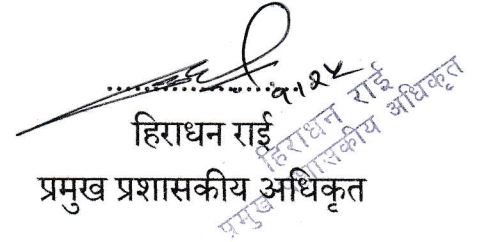 ९।२५
हिराधन राई
प्रमुख प्रशासकीय अधिकृत
हिराधन राई
प्रमुख प्रशासकीय अधिकृत